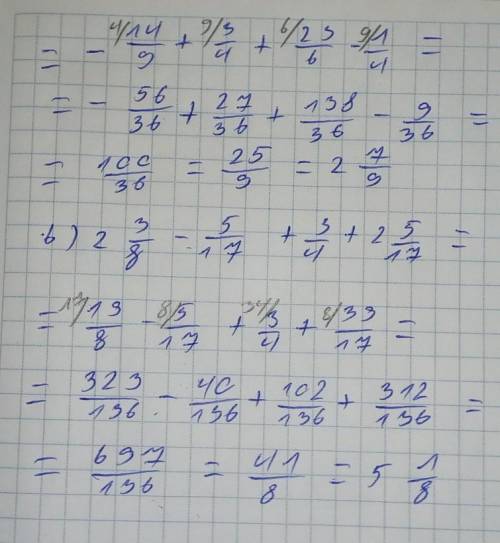 = - 4/14/9 + 9/3/4 + 6/23/6 - 9/1/4 =
= - 56/36 + 27/36 + 138/36 - 9/36 =
= 100/36 = 25/9 = 2 7/9
b) 2 3/8 - 5/17 + 3/4 + 2 5/17 =
= 17/19/8 - 8/5/17 + 34/3/4 + 8/39/17 =
= 323/136 - 40/136 + 102/136 + 312/136 =
= 697/136 = 41/8 = 5 1/8